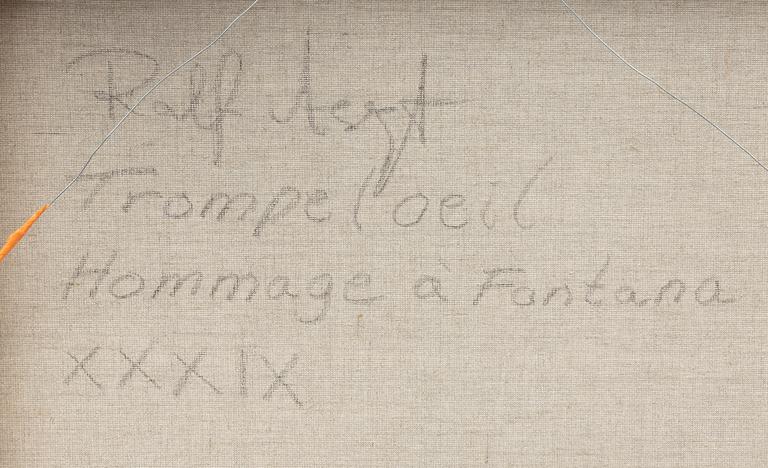 Ralf Arzt
Trompe l oeil
Hommage à Fontana
XXXIX